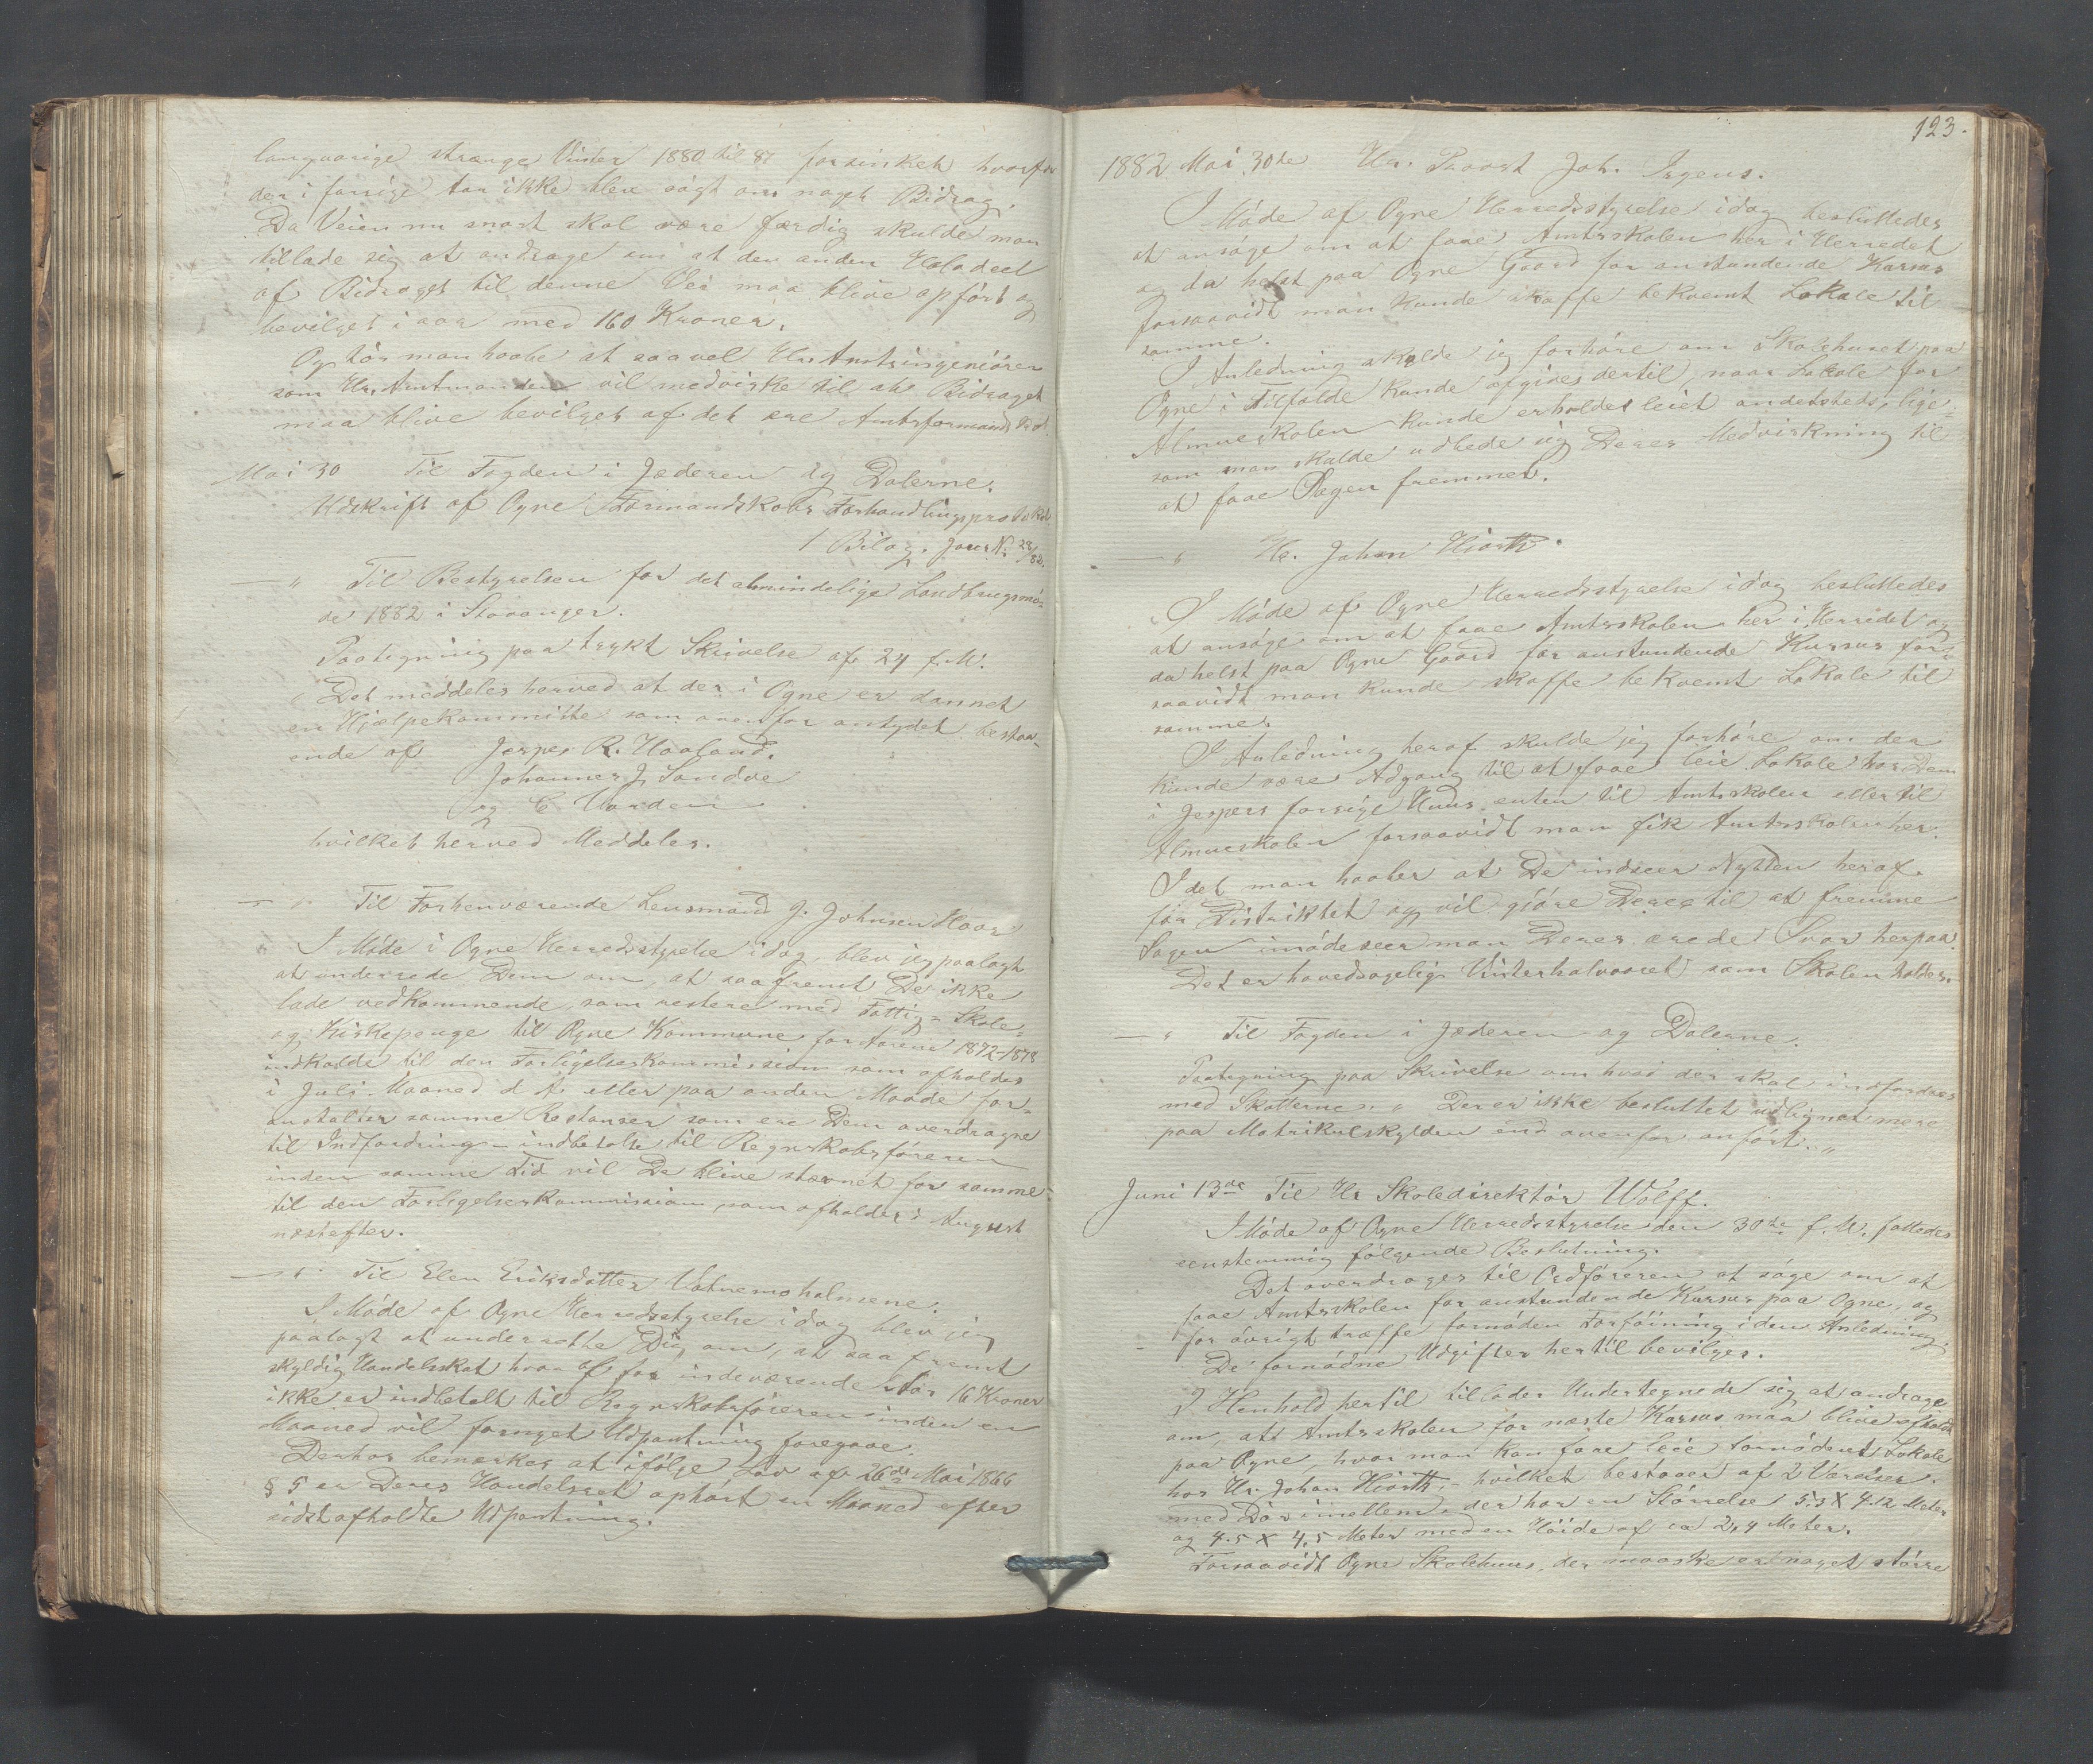 langvarige strænge Vinter 1880 til 81 forsinket hvorfor
der i forrige Aar ikke blev søgt om noget Bidrag.
Da Veien nu snart skal være færdig skulde man
tillade sig at andrage om at den anden Halvdeel
af Bidraget til denne Vei maa blive opført og
bevilget i aar med 160 Kroner.
Og tør man haabe at saavel Hr. Amtsingeniøren
som Hr. Amtmanden vil medvirke til at Bidraget
maa blive bevilget af det ære Amtsformandskab.
Mai 30 Til Fogden i Jæderen og Dalerne.
Udskrift af Ogne Formandskabs Forhandlingsprotokol
1 Bilag. Jour N: 28/82.
— " Til Bestyrelsen for det almindelige Landbrugsmø-
de 1882 i Stavanger.
Paategning paa trykt Skrivelse af 24 f. M.
Det meddeles herved at der i Ogne er dannet
en Hjælpekommitte som ovenfor antydet bestaa-
ende af Jesper R. Haaland.
Johannes J. Sandve
og C Varden
hvilket herved Meddeles.
— " Til Forhenværende Lensmand J. Johnsen Haar
I Møde i Ogne Herredsstyrelse idag, blev jeg paalagt
at underrede Dem om, at saafremt De ikke
lade vedkommende, som restere med Fattig- Skole-
og Kirkepenge til Ogne Kommune for Aarene 1872-1878
indkalde til den Forligelseskommission som afholdes
i Juli Maaned d. A. eller paa anden Maade for-
anstalter samme Restanser som ere Dem overdragne
til Indfordring - indbetalte til Regnskabsføreren
inden samme Tid vil De blive stævnet for samme
til den Forligelseskommission, som afholdes i August
næstefter.
— " Til Elen Eriksdatter Vatnemoholmene.
I Møde af Ogne Herredsstyrelse idag blev jeg
paalagt at underrette Dig om, at saafremt
skyldig Handelsskat hvoraf for indeværende Aar 16 Kroner
ikke er indbetalt til Regnskabsføreren inden en
Maaned vil fornyet Udpantning foregaae.
Derhos bemærkes at ifølge Lov af 26de Mai 1866
§ 5 er Deres Handelsret ophørt en Maaned efter
sidst afholdte Udpantning.
123.
1882 Mai 30te Hr. Provst Joh. Irgens.
I Møde af Ogne Herredsstyrelse idag besluttedes
at ansøge om at faae Amtsskolen her i Herredet
og da helst paa Ogne Gaard for anstundende Kursus
forsaavidt man kunde skaffe bekvemt Lokale til
samme.
I Anledning skulde jeg forhøre om Skolehuset paa
Ogne i Tilfælde kunde afgives dertil naar Lokale for
Almueskolen kunde erholdes leiet andetsteds, lige-
som man skulde udbede sig Deres Medvirkning til
at faae Sagen fremmet.
— " Hr. Johan Hiorth.
I Møde af Ogne Herredsstyrelse idag besluttedes
at ansøge om at faae Amtsskolen her i Herredet og
da helst paa Ogne Gaard for anstundende Kursus for-
saavidt man kunde skaffe bekvemt Lokale til
samme.
I Anledning heraf skulde jeg forhøre om der
kunde være Adgang til at faae leie Lokale hos Dem
i Jespers forrige Huus enten til Amtsskolen eller til
Almueskolen forsaavidt man fik Amtsskolen her.
I det man haaber at De indseer Nytten heraf
for Distriktet og vil gjøre Deres til at fremme
Sagen imødeseer man Deres ærede Svar herpaa.
Det er hovedsagelig Vinterhalvaaret som Skolen holdes.
— " Til Fogden i Jæderen og Dalerne.
Paategning paa Skrivelse om hvad der skal indfordres
med Skatterne. " Der er ikke besluttet udlignet mere
paa Matrikulskylden end ovenfor anført. "
Juni 13de Til Hr Skoledirektør Wolff.
I Møde af Ogne Herredsstyrelse den 30te f. M. fattedes
eenstemmig følgende Beslutning.
Det overdrages til Ordføreren at søge om at
faae Amtsskolen for anstundende Kursus paa Ogne, og
for øvrigt træffe fornøden Forføining i den Anledning.
De fornødne Udgifter hertil bevilges.
I Henhold hertil tillader Undertegnede sig at andrage
om, at Amtsskolen for næste Kursus maa blive afholdt
paa Ogne, hvor man kan faae leie fornødent Lokale
hos Hr. Johan Hiorth, - hvilket bestaaer af 2 Værelser
med Dør imellem, der har en Størrelse 5.3 X 4.12 Meter
og 4.5 X 4,5 Meter med en Høide af ca 2,4 Meter.
Forsaavidt Ogne Skolehuus, der maaske er noget større